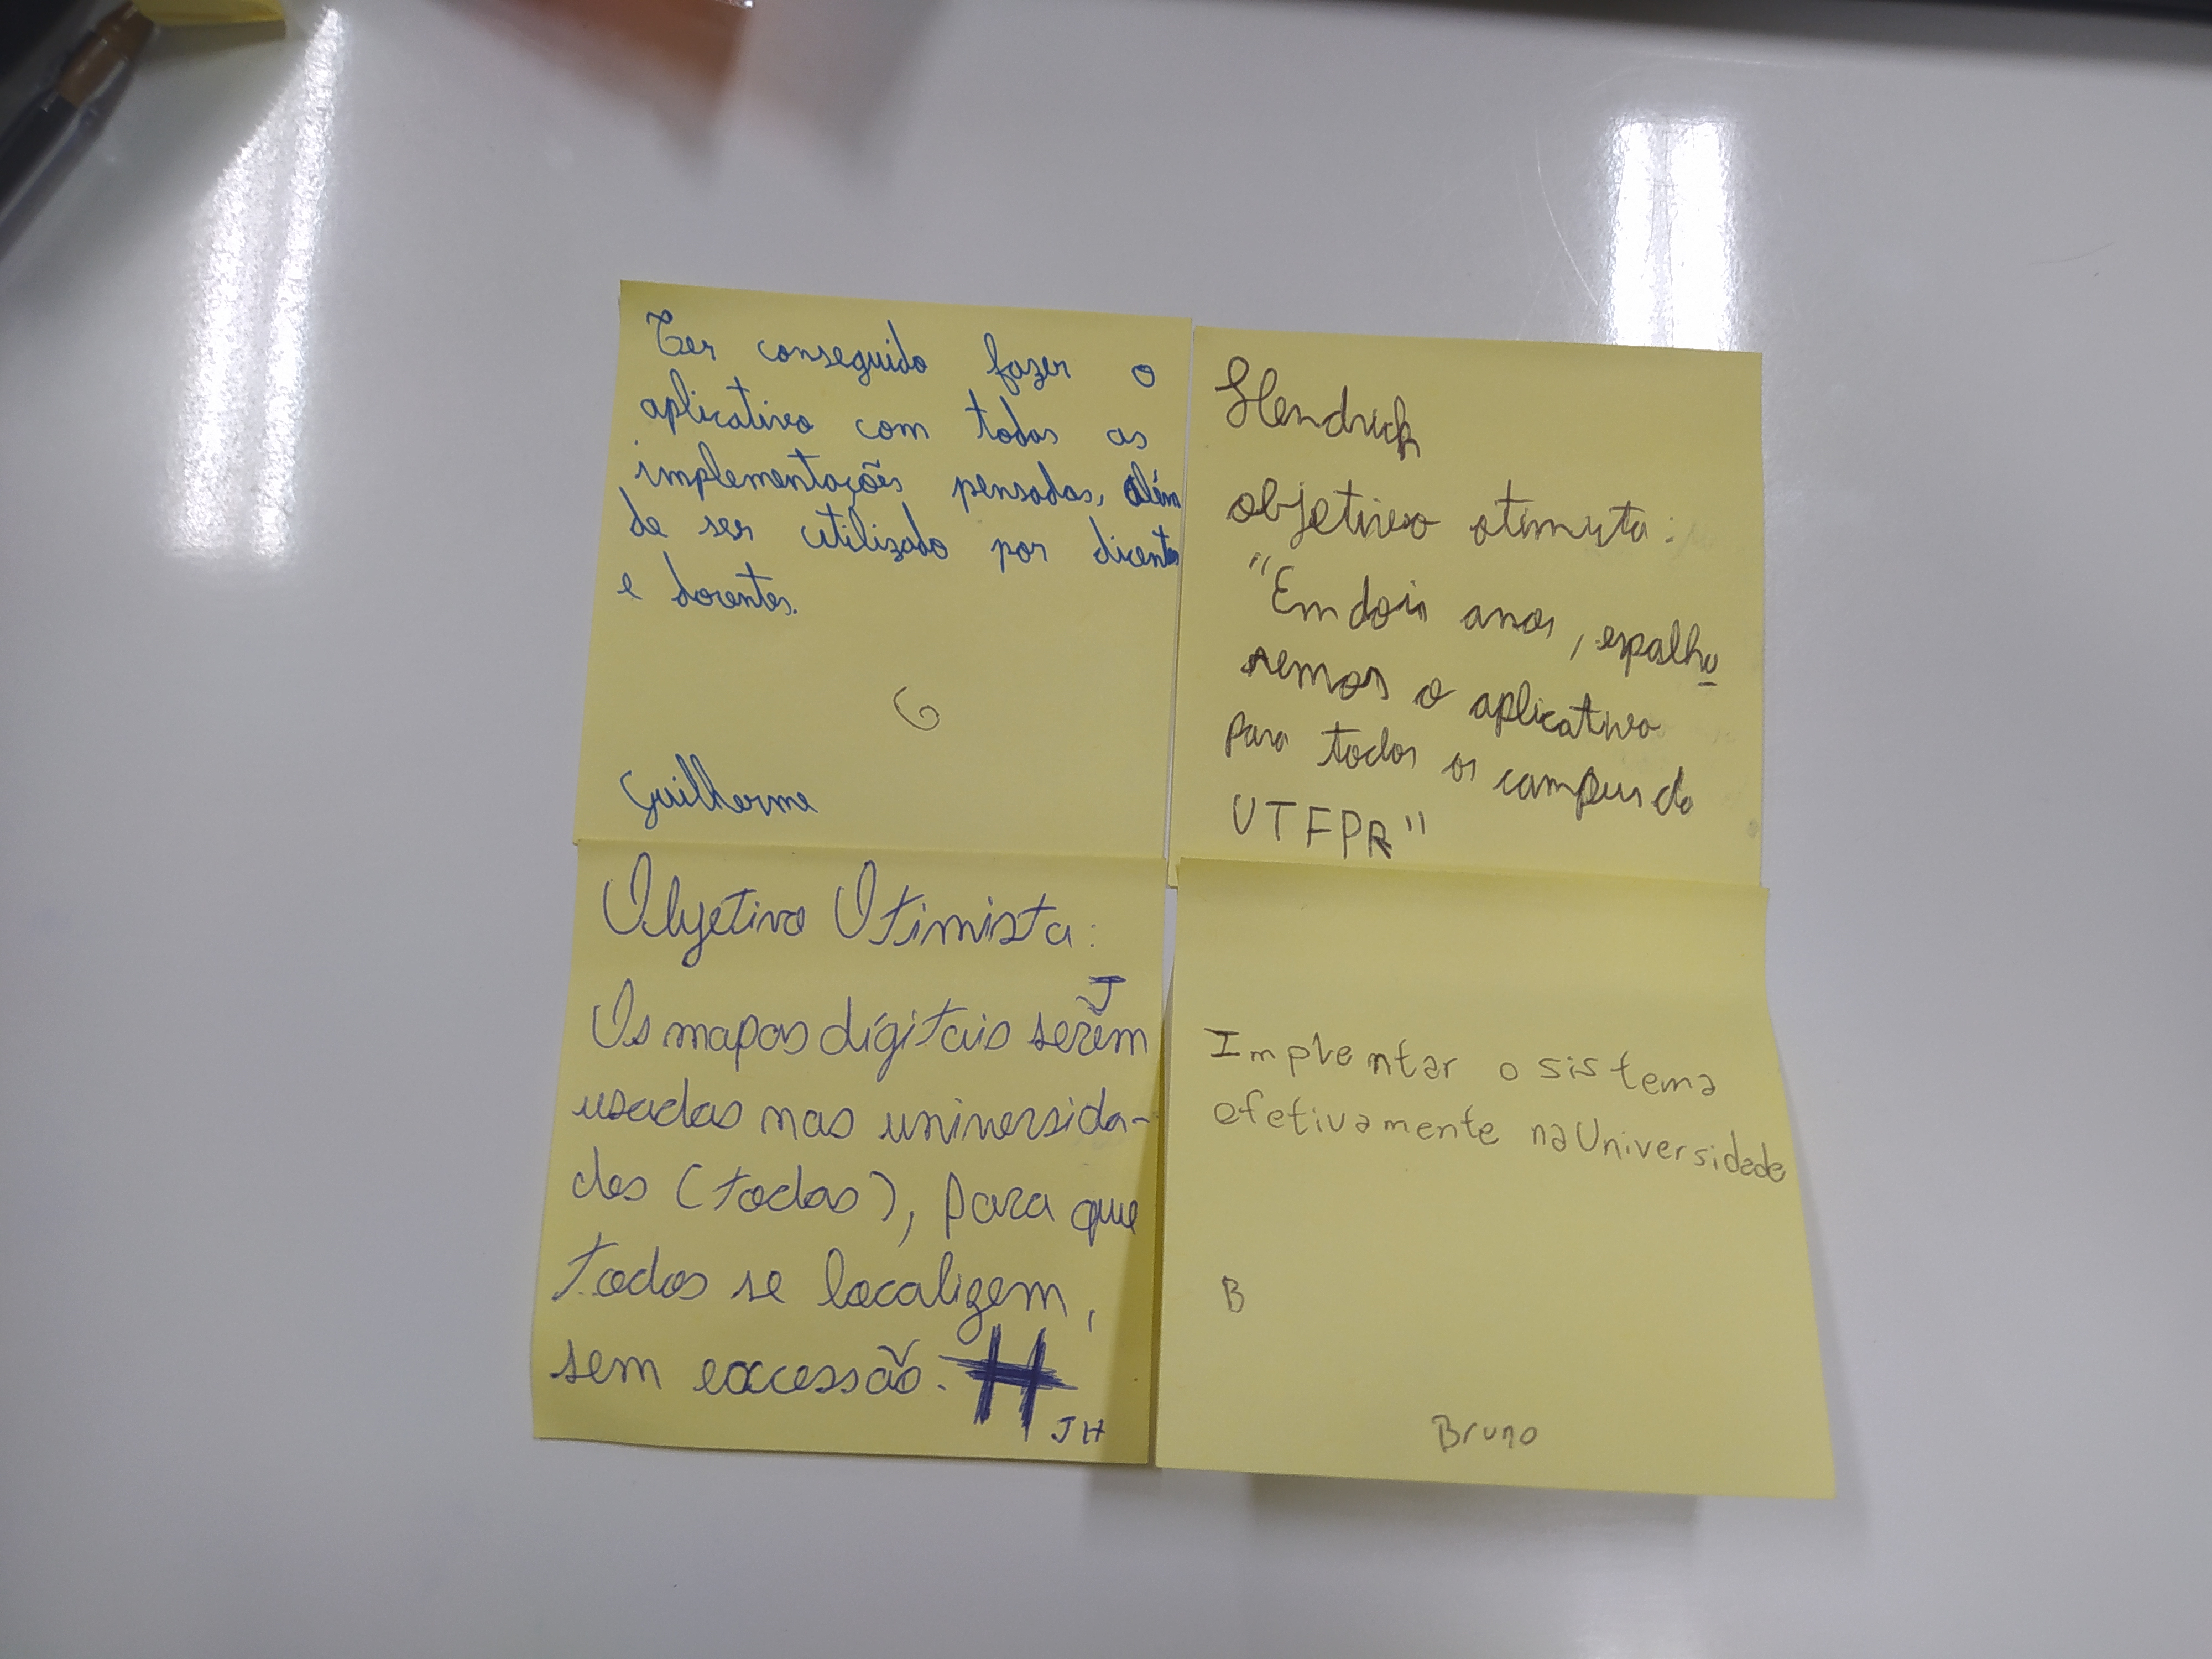 Ter conseguido fazer o
aplicativo com todas as
implementações pensadas, além
de ser utilizado por dicentes
e docentes.
G
Guilherme
Hendrick
objetivo otimista:
"Em dois anos, espalha
remos o aplicativo
para todos os campus da
UTFPR"
Objetivo Otimista:
J
Os mapas digitais serem
usadas nas universida-
des (todas), para que
todos se localizem,
sem excessão. H
JH
Implentar o sistema
efetivamente na Universidade
B
Bruno